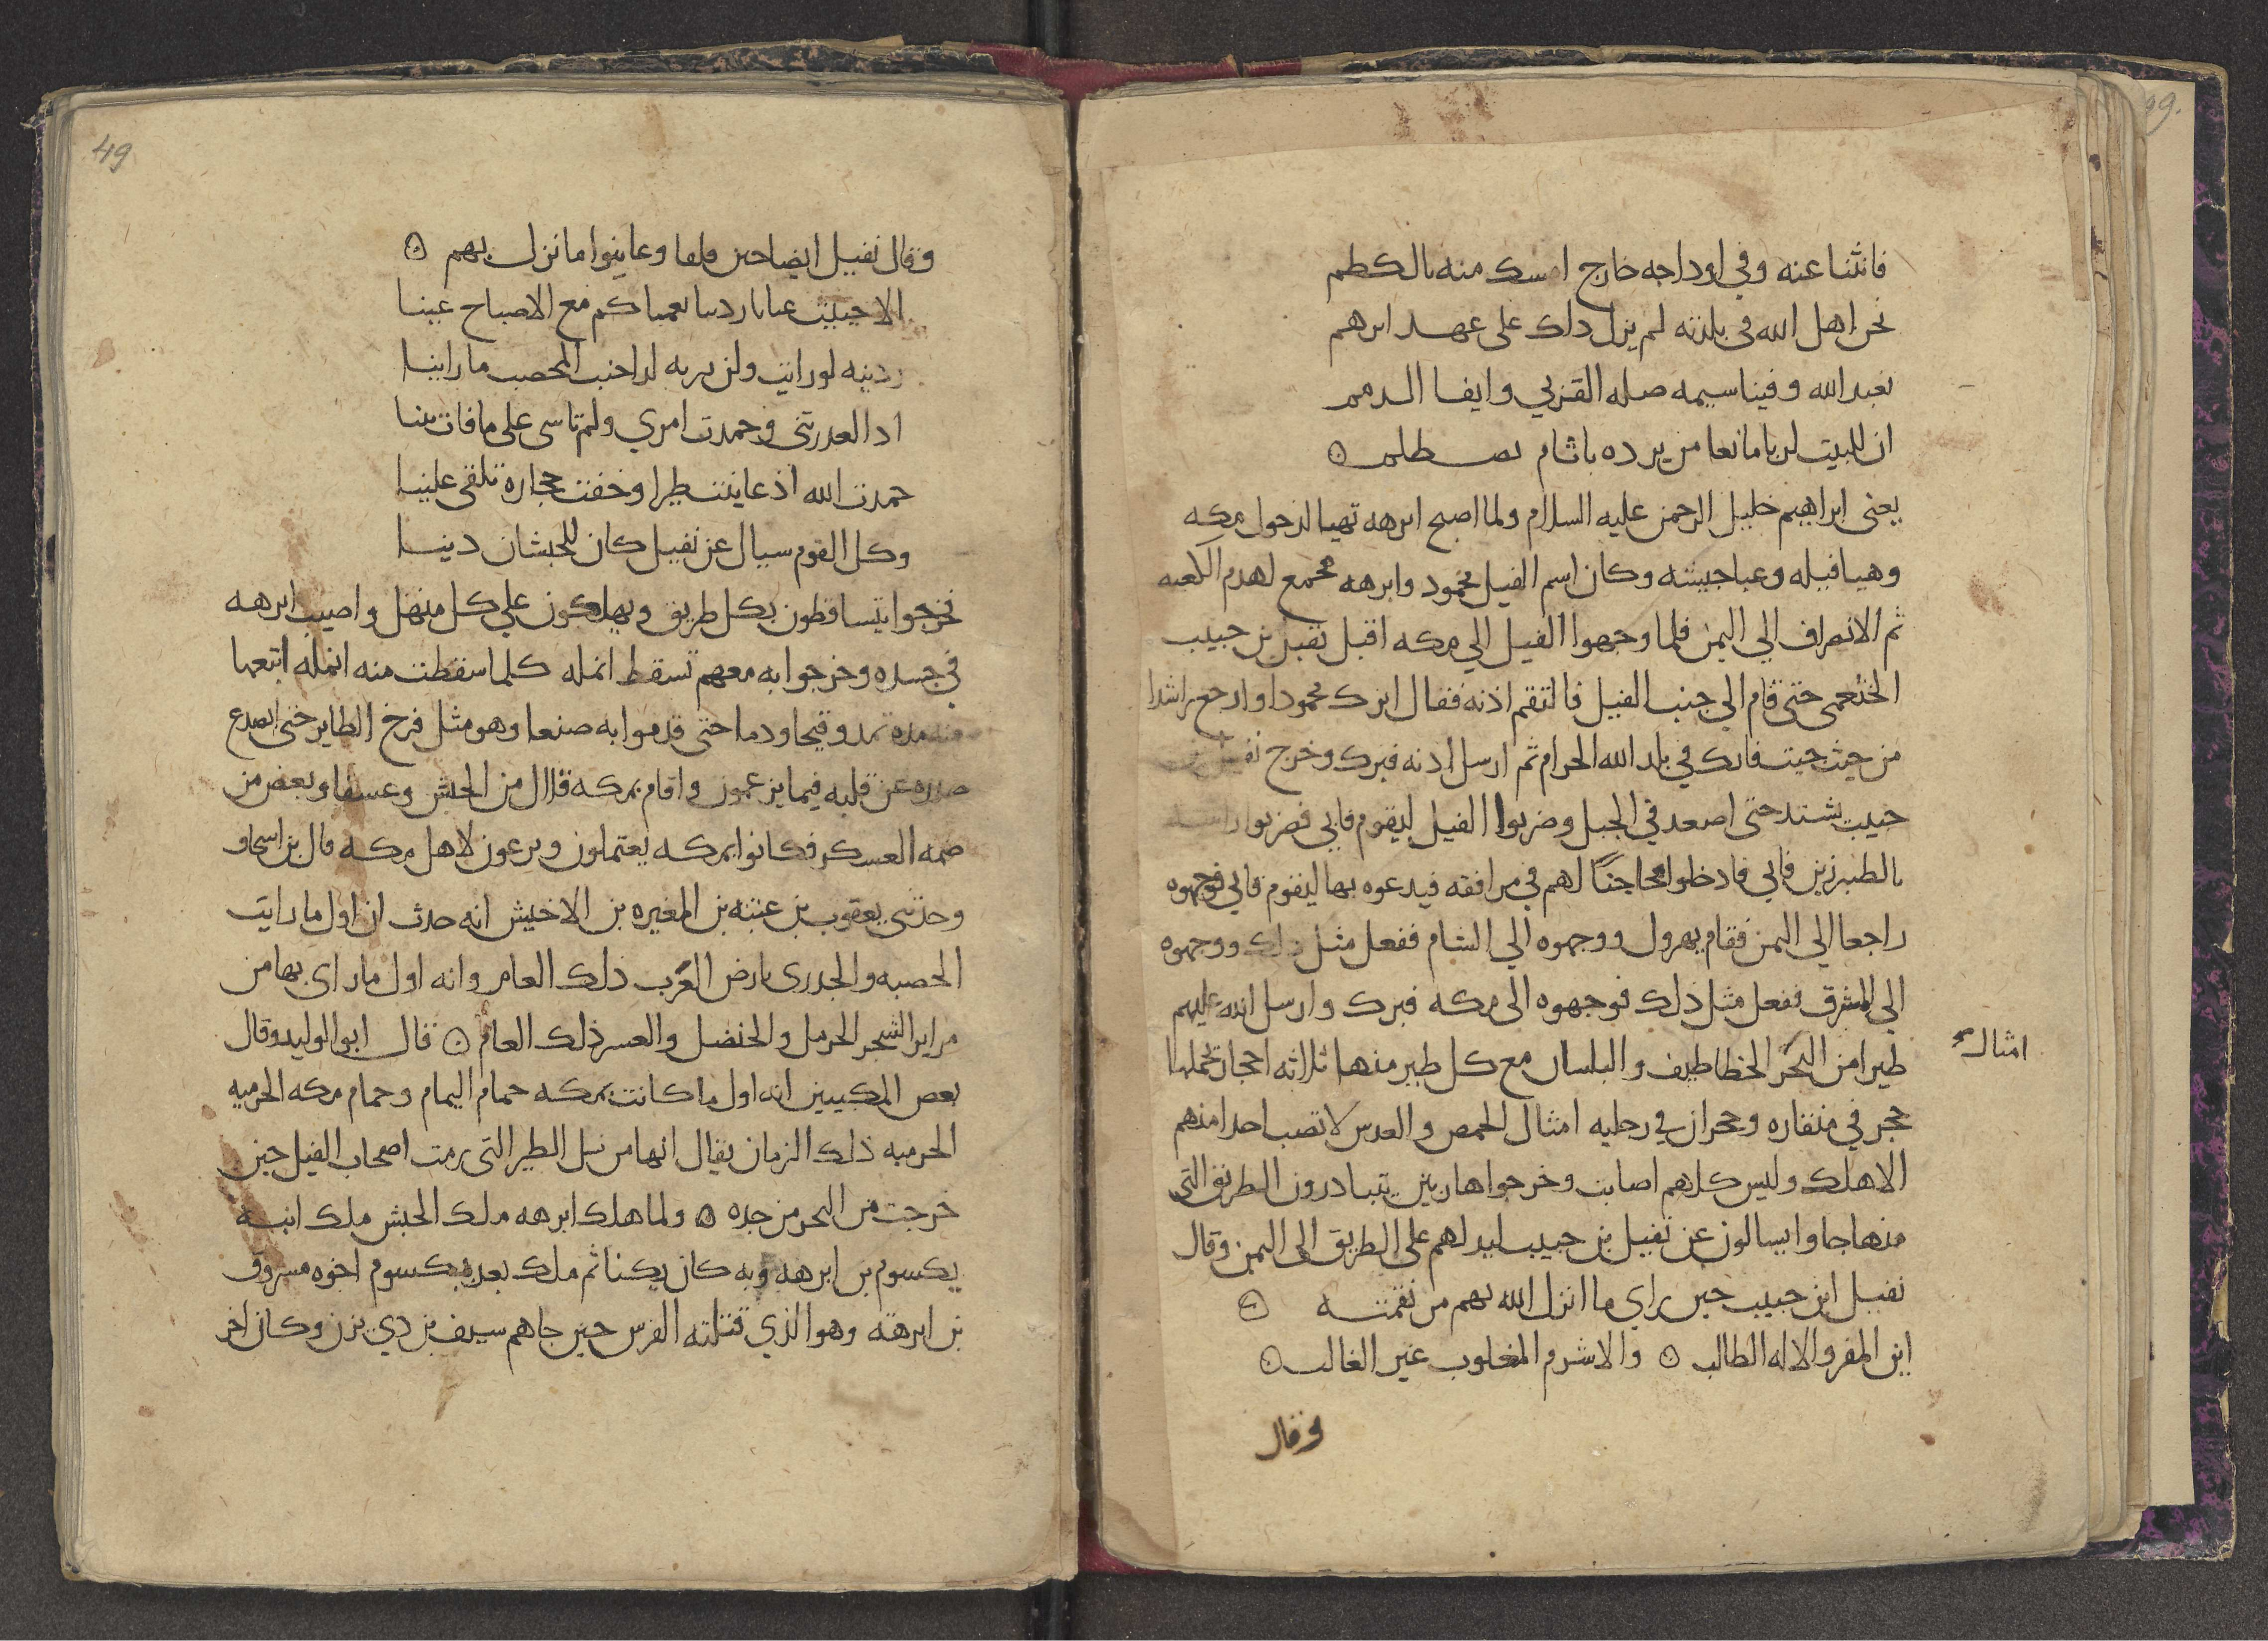 فانثنا عنه وفي اوداجه خارج امسك منه بالكطم
نحن اهل الله في بلدته لم يزل ذلك على عهد ابرهم
نعبد الله وفينا سيمه صله القربي وايفا الذمم
ان للبيت لربا مانعا من يرده باثام يصطلم
يعني ابراهيم خليل الرحمن عليه السلام ولما اصبح ابرهه تهيا لدخول مكه
وهيا فيله وعبا جيشه وكان اسم الفيل محمود وابرهه مجمع لهدم الكعبه
ثم الانصراف الي اليمن فلما وجهوا الفيل الي مكه اقبل نفيل بن حبيب
الخثعمي حتى قام الي جنب الفيل فالتقم اذنه فقال ابرك محمودا وارجع راشدا
من حيث جيت فانك في بلد الله الحرام ثم ارسل اذنه فبرك وخرج نفيل بن
حبيب يشتد حتى اصعد في الجبل وضربوا الفيل ليقوم فابي فضربوا راسه
بالطبرزين فابي فادخلوا محاجنًا لهم في مرافقه فيدعوه بها ليقوم فابي فوجهوه
راجعا الي اليمن فقام يهرول ووجهوه الي الشام ففعل مثل ذلك ووجهوه
الي المشرق ففعل مثل ذلك فوجهوه الى مكه فبرك وارسل الله عليهم
طيرا من البحر الخطاطيف والبلسان مع كل طير منها ثلاثه احجار يحملها
امثال
حجر في منقاره وحجران في رجليه امثال الحمص والعدس لا تصب احدا منهم
الا هلك وليس كلهم اصابت وخرجوا هاربين يتبادرون الطريق التي
منها جاوا يسالون عن نفيل بن حبيب ليدلهم على الطريق الى اليمن وقال
نفيل ابن حبيب حين راي ما انزل الله بهم من نقمته
اين المفر والاله الطالب والاشرم المغلوب غير الغالب
وقال
49
وقال نفيل ايضا حين ولوا وعاينوا ما نزل بهم
الا حييت عنا يا ردينا نعمناكم مع الاصباح عينا
ردينه لو رايت ولن تريه لدا جنب المحصب ما راينا
اذا لعذرتني وحمدت امري ولم تاسى على ما فات بينا
حمدت الله اذ عاينت طيرا وخفت حجارة تلقى علينا
وكل القوم سيال عن نفيل كان للحبشان دينا
فخرجوا يتساقطون بكل طريق ويهلكون علي كل منهل واصيب ابرهه
في جسده وخرجوا به معهم تسقط انمله كلما سقطت منه انمله اتبعها
منه مده تمد وقيحا ودما حتى قدموا به صنعا وهو مثل فرخ الطاير حتى انصدع
صدره عن قلبه فيما يزعمون واقام بمكه فلال من الحبش وعسفا وبعض من
ضمه العسكر فكانوا بمكه يعتملون ويرعون لاهل مكه قال بن اسحاق
وحدثني يعقوب بن عتبه بن المغيره بن الاخيش انه حدث ان اول ما رايت
الحصبه والجدري بارض العرب ذلك العام وانه اول ما راى بها من
مراير الشجر الحرمل والحنضل والعسر ذلك العام قال ابو الوليد وقال
بعض المكيين انه اول ما كانت بمكه حمام اليمام وحمام مكه الحرميه
الحرميه ذلك الزمان يقال انها من نسل الطير التي رمت اصحاب الفيل حين
خرجت من البحر من جده ولما هلك ابرهه ملك الحبش ملك ابنه
يكسوم بن ابرهه وبه كان يكنا ثم ملك بعد يكسوم اخوه مسروق
بن ابرهه وهو الذي قتلته الفرس حين جاهم سيف بن ذي يزن وكان اخر